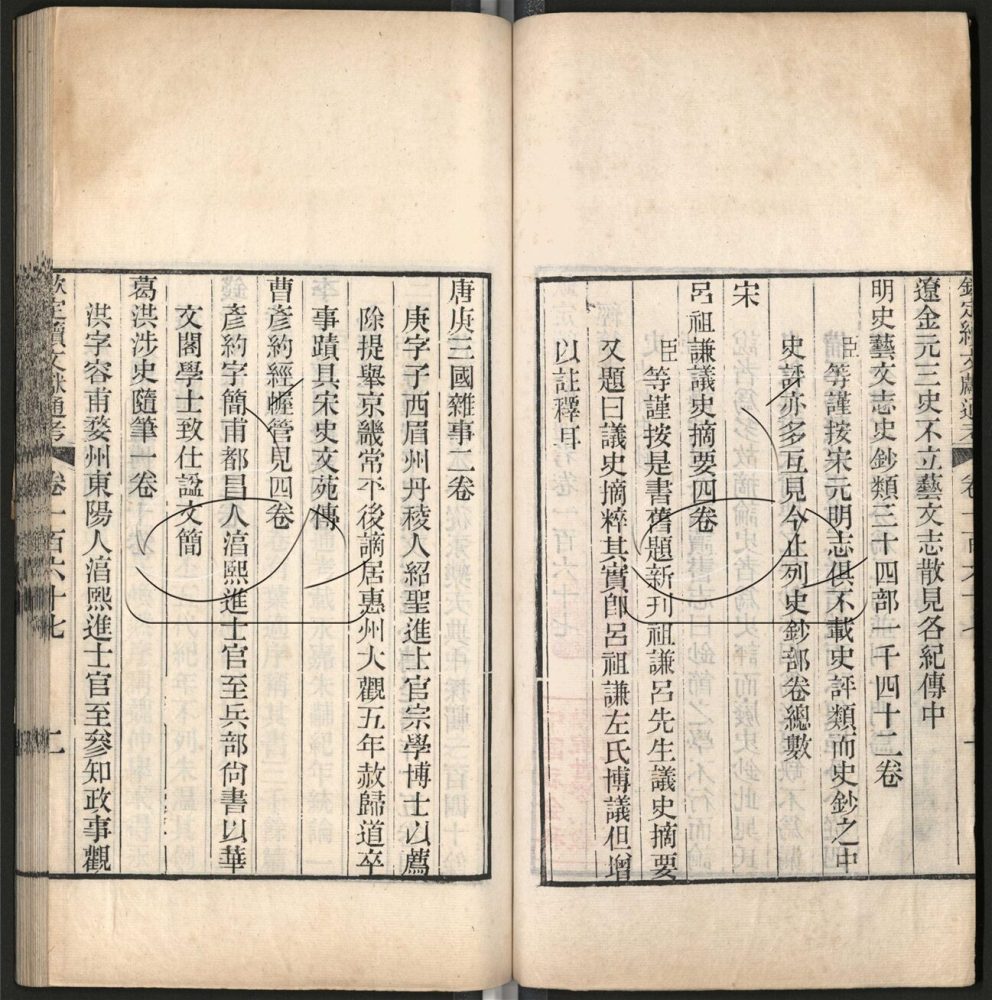 欽定續文獻通考 卷一百六十七
遼金元三史不立藝文志散見各紀傳中
明史藝文志史鈔類三十四部一千四十二卷
臣等謹按宋元明志俱不載史評類而史鈔之中
史評亦多互見今止列史鈔部卷總數
宋
呂祖謙議史摘要四卷
臣等謹按是書舊題新刊祖謙呂先生議史摘要
又題曰議史摘粹其實卽呂祖謙左氏博議但增
以註釋耳
唐庚三國雜事二卷
庚字子西眉州丹稜人紹聖進士官宗學博士以薦
除提舉京畿常平後謫居惠州大觀五年赦歸道卒
事蹟具宋史文苑傳
曹彥約經幄管見四卷
彥約字簡甫都昌人淳熙進士官至兵部尙書以華
文閣學士致仕諡文簡
葛洪涉史隨筆一卷
洪字容甫婺州東陽人淳熙進士官至參知政事觀
欽定續文獻通考 卷一百六十七 二